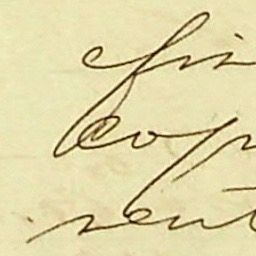 fin
cop
sent